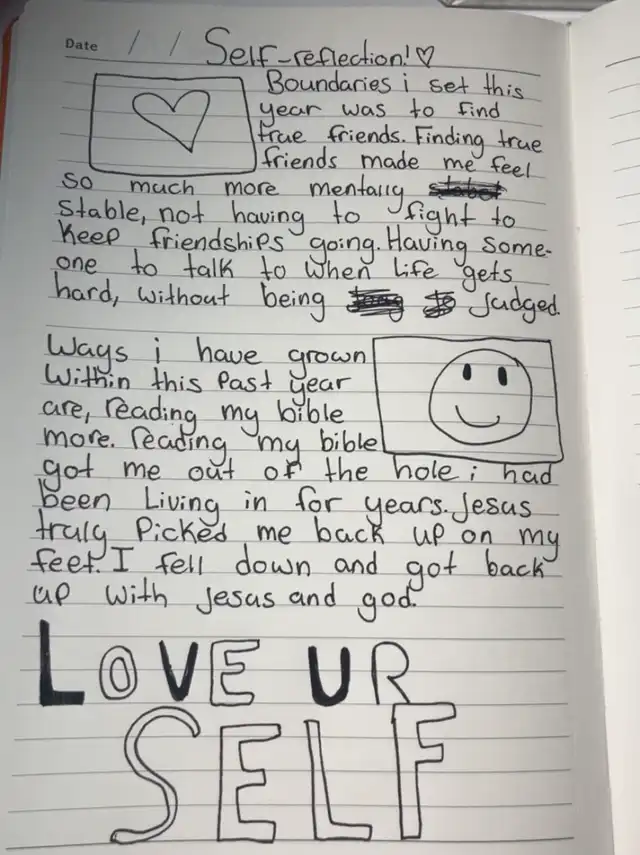 Date / / Self-reflection! ♡
Boundaries i set this
year was to find
true friends. Finding true
friends made me feel
so much more mentally
stable, not having to fight to
keep friendships going. Having some-
one to talk to when life gets
hard, without being judged.
Ways i have grown
within this past year
are, reading my bible
more. reading my bible
got me out of the hole i had
been living in for years. Jesus
truly picked me back up on my
feet. I fell down and got back
up with jesus and god.
LOVE UR
SELF